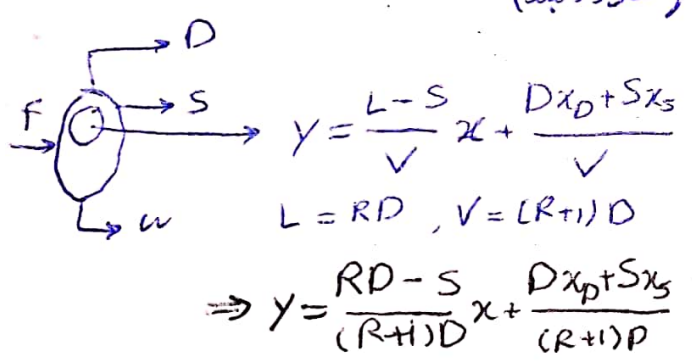 D
F
S
y = (L-S)/V x + (Dx_D+Sx_s)/V
W
L = RD , V = (R+1) D
⇒ y = (RD-S)/((R+1)D) x + (Dx_D+Sx_s)/((R+1)D)